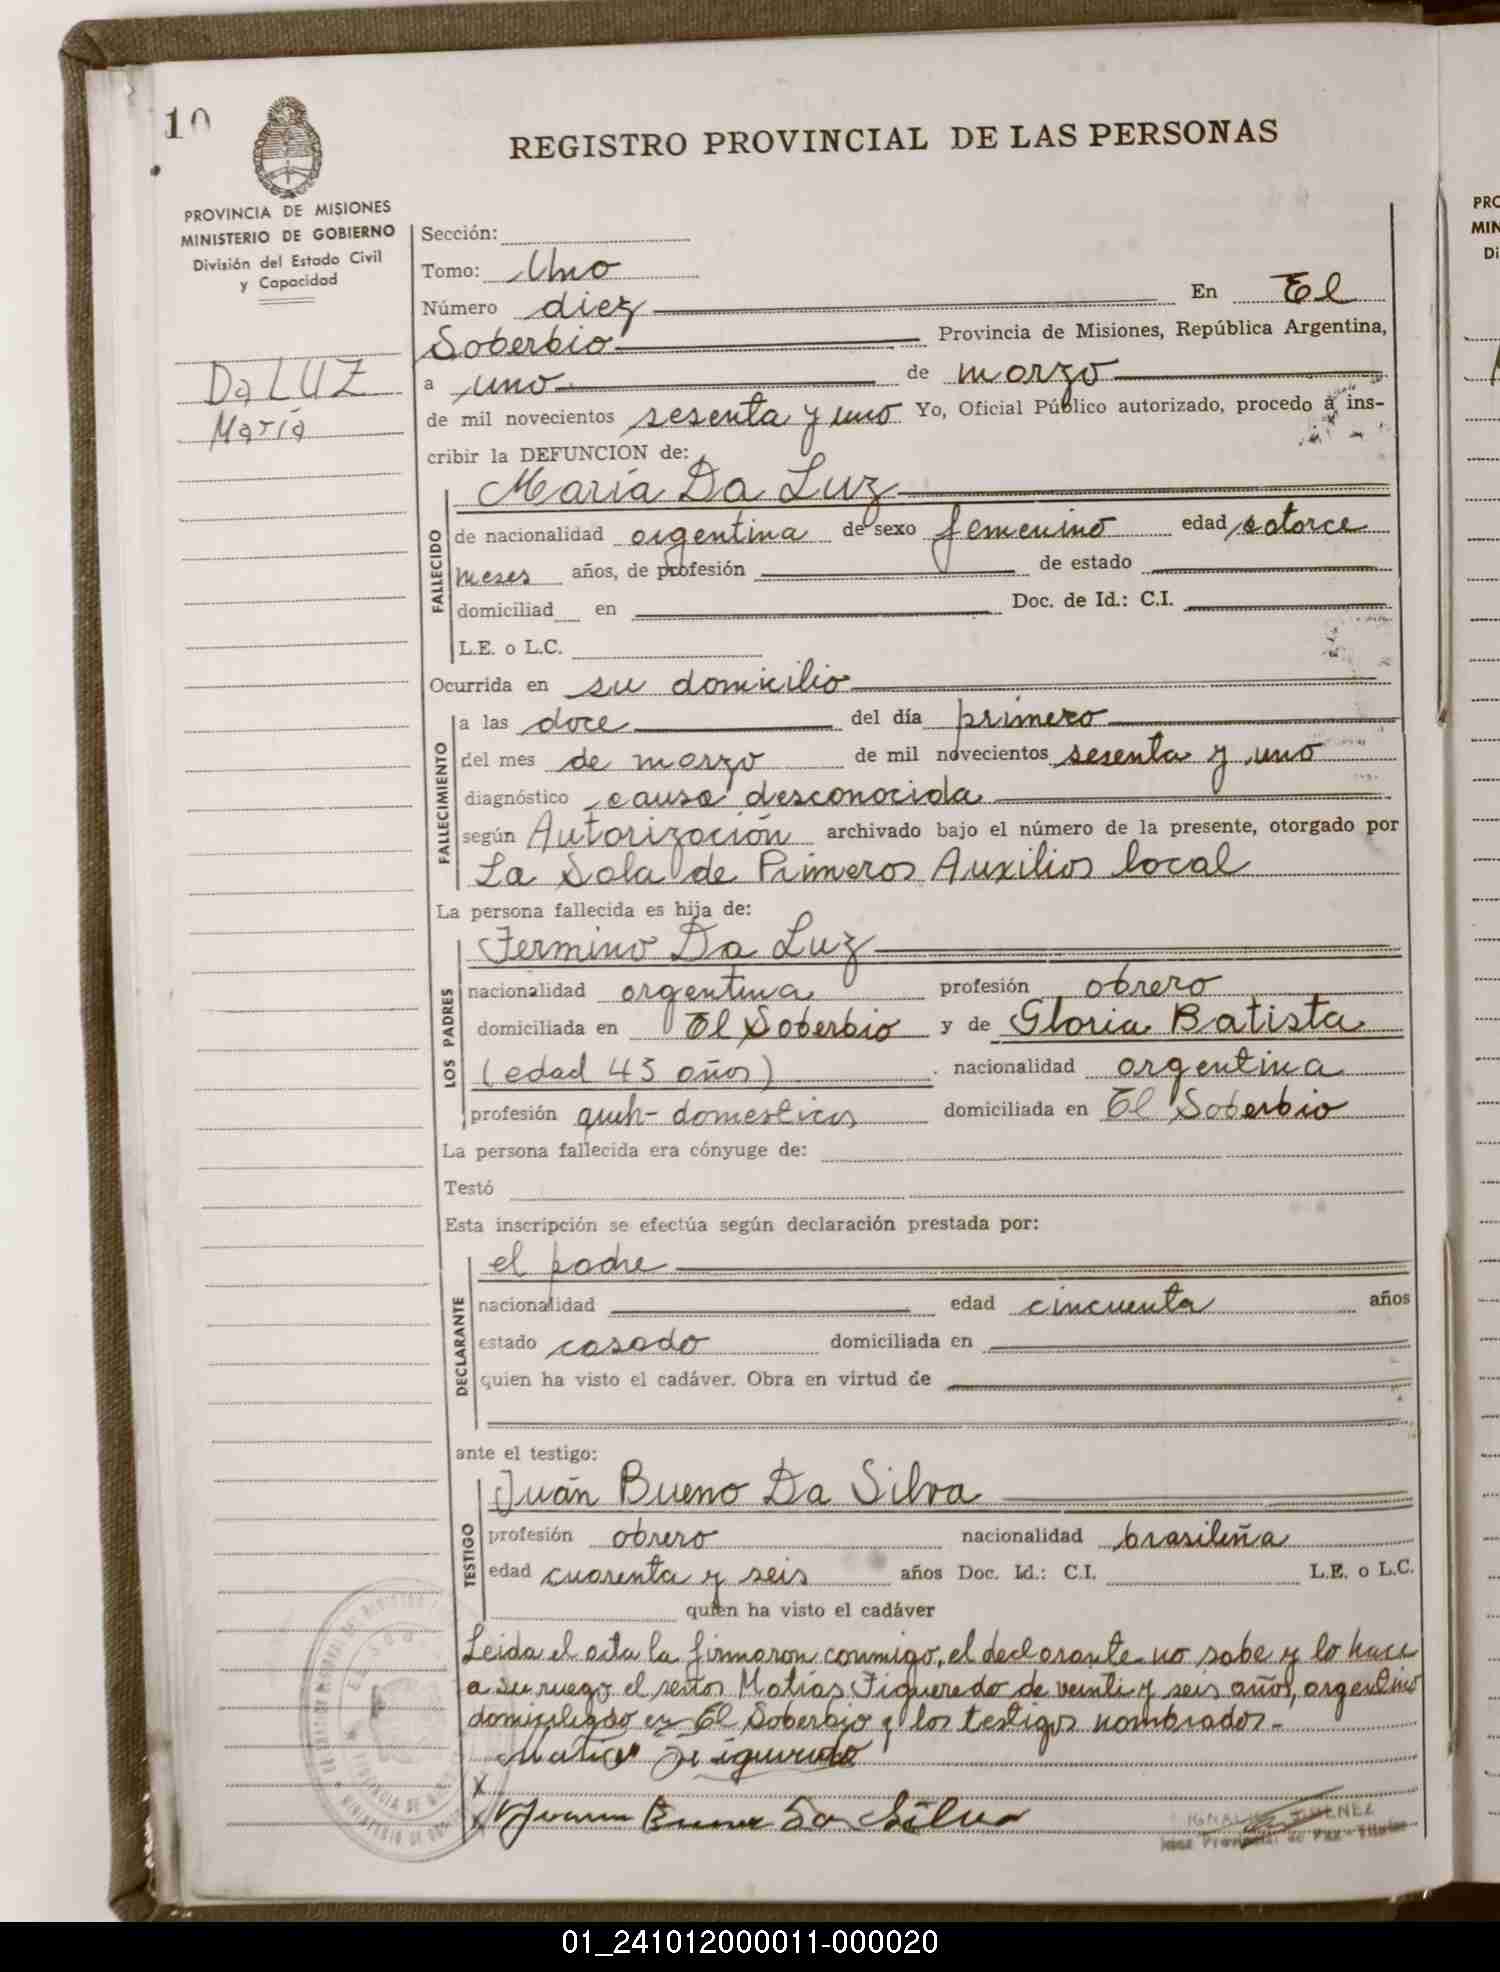 10
REGISTRO PROVINCIAL DE LAS PERSONAS
PROVINCIA DE MISIONES
MINISTERIO DE GOBIERNO
División del Estado Civil
y Capacidad
Da LUZ
María
Sección:
Tomo: Uno
Número diez En El
Soberbio Provincia de Misiones, República Argentina,
a uno de marzo
de mil novecientos sesenta y uno Yo, Oficial Público autorizado, procedo a ins-
cribir la DEFUNCION de:
María Da Luz
FALLECIDO
de nacionalidad argentina de sexo femenino edad catorce
meses años, de profesión de estado
domiciliad en Doc. de Id.: C.I.
L.E. o L.C.
Ocurrida en su domicilio
FALLECIMIENTO
a las doce del día primero
del mes de marzo de mil novecientos sesenta y uno
diagnóstico causa desconocida
según Autorización archivado bajo el número de la presente, otorgado por
La Sala de Primeros Auxilios local
La persona fallecida es hija de:
LOS PADRES
Fermino Da Luz
nacionalidad argentina profesión obrero
domiciliada en El Soberbio y de Gloria Batista
(edad 45 años) nacionalidad argentina
profesión queh- domesticos domiciliada en El Soberbio
La persona fallecida era cónyuge de:
Testó
Esta inscripción se efectúa según declaración prestada por:
DECLARANTE
el padre
nacionalidad edad cincuenta años
estado casado domiciliada en
quien ha visto el cadáver. Obra en virtud de
ante el testigo:
TESTIGO
Juán Bueno Da Silva
profesión obrero nacionalidad brasileña
edad cuarenta y seis años Doc. Id.: C.I. L.E. o L.C.
quien ha visto el cadáver
Leida el acta la firmaron conmigo, el declarante no sabe y lo hace
a su ruego el señor Matías Figueredo de veinti y seis años, argentino
domiciliado en El Soberbio y los testigos nombrados.-
Matias Figueredo
X
X Juan Bueno Da Silva
IGNACIO JIMENEZ
Juez Provincial de Paz - Titular
PRO
MIN
Di
01_241012000011-000020